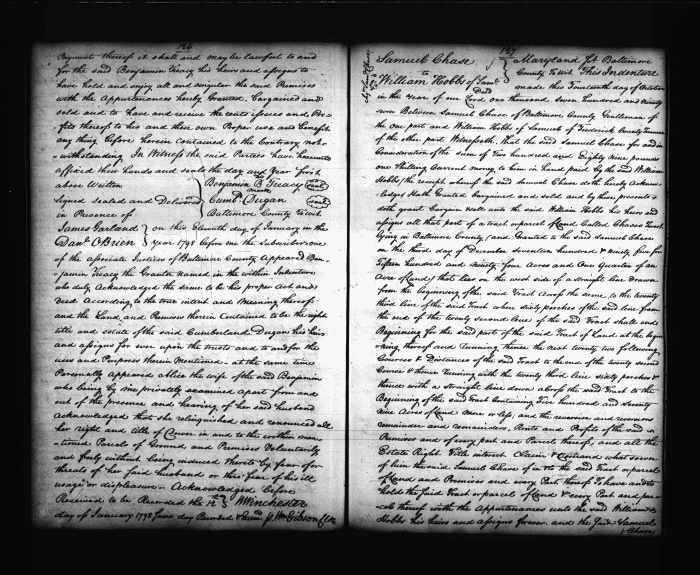 126
Payment thereof it shall and may be lawful to and
for the said Benjamin Treacy his heirs and assigns to
have hold and enjoy all and singular the said Premises
with the Appurtenances hereby Granted, Bargained and
sold and to have and receive the rents issues and Pro-
fits thereof to his and their own Proper use and benefit
any thing before herein contained to the Contrary not-
withstanding In Witness the said Parties have hereunto
affixed their Hands and seals the day and Year first
above Written
Benjamin B Treacy seal
mark
Signed sealed and Delivered
Cumb. Dugan seal
in Presence of
Baltimore County to wit
James Garland
on this Eleventh day of January in the
Danl. O'Brien
year 1798 before me the subscriber one
of the associate Justices of Baltimore County Appeared Ben-
jamin Treacy the Grantor Named in the within Indenture
who duly Acknowledged the same to be his proper Act and
Deed According to the true intent and Meaning thereof
and the Land and Premises therein Contained to be the right
title and estate of the said Cumberland Dugan his heirs
and assigns for ever upon the trusts and to and for the
uses and Purposes therein Mentioned - at the same time
Personally appeared Alice the wife of the said Benjamin
who being by me privately examined apart from and
out of the presence and hearing of her said husband
acknowledged that she relinquished and renounced all
her right and title of Dower in and to the within men-
tioned Parcels of Ground and Premises Voluntarily
and freely without being induced thereto by fear or
threats of her said husband or thro' fear of his ill
usage or displeasure - Acknowledged before
Received to be Recorded the 12th
W Winchester
day of January 1798 Same day Recorded & Exam. Wm Gibson Clk
127
Samuel Chase
to
William Hobbs of Saml.
Deed
Maryland Sct Baltimore
County to wit This Indenture
made this Fourteenth day of October
in the Year of our Lord one thousand seven hundred and ninety
seven Between Samuel Chase of Baltimore County Gentleman of
the one part and William Hobbs of Samuel of Frederick County Farmer
of the other part Witnesseth, that the said Samuel Chase for and in
Consideration of the sum of Two hundred and Eighty nine pounds
one Shilling Current money to him in hand paid by the said William
Hobbs, the receipt whereof the said Samuel Chase doth hereby Acknow-
ledge, Hath Granted Bargained and sold and by these presents
doth grant Bargain and sell unto the said William Hobbs his heirs and
assigns all that part of a tract or parcel of Land Called Chases Forest
lying in Baltimore County, and Granted to the said Samuel Chase
on the third day of December seventeen hundred & ninety five for
Fifteen hundred and Ninety four Acres and One Quarter of an
Acre of Land that lies on the west side of a straight line Drawn
from the beginning of the said Tract Across the same, to the twenty
third line of the said Tract where sixty perches of the said line from
the end of the twenty second line of the said Tract shall end
Beginning for the said part of the said Tract of Land at the begin-
ning thereof and Running thence the next twenty two following
Courses & Distances of the said Tract to the end of the twenty second
Course & thence Running with the twenty third line sixty perches &
thence with a straight line down across the said Tract to the
Beginning of the said Tract Containing Five hundred and seventy
nine Acres of Land More or less, and the reversion and reversions
remainder and remainders, Rents and Profits of the said
Premises and of every part and Parcel thereof, and all the
Estate Right Title interest Claim & Demand what soever
of him the said Samuel Chase of in & to the said Tract or parcel
of Land and Premises and every Part thereof To have and to
hold the said Tract or parcel of Land & every Part and par-
cel thereof with the Appurtenances unto the said William
Hobbs his heirs and assigns forever and the said Samuel
Chase